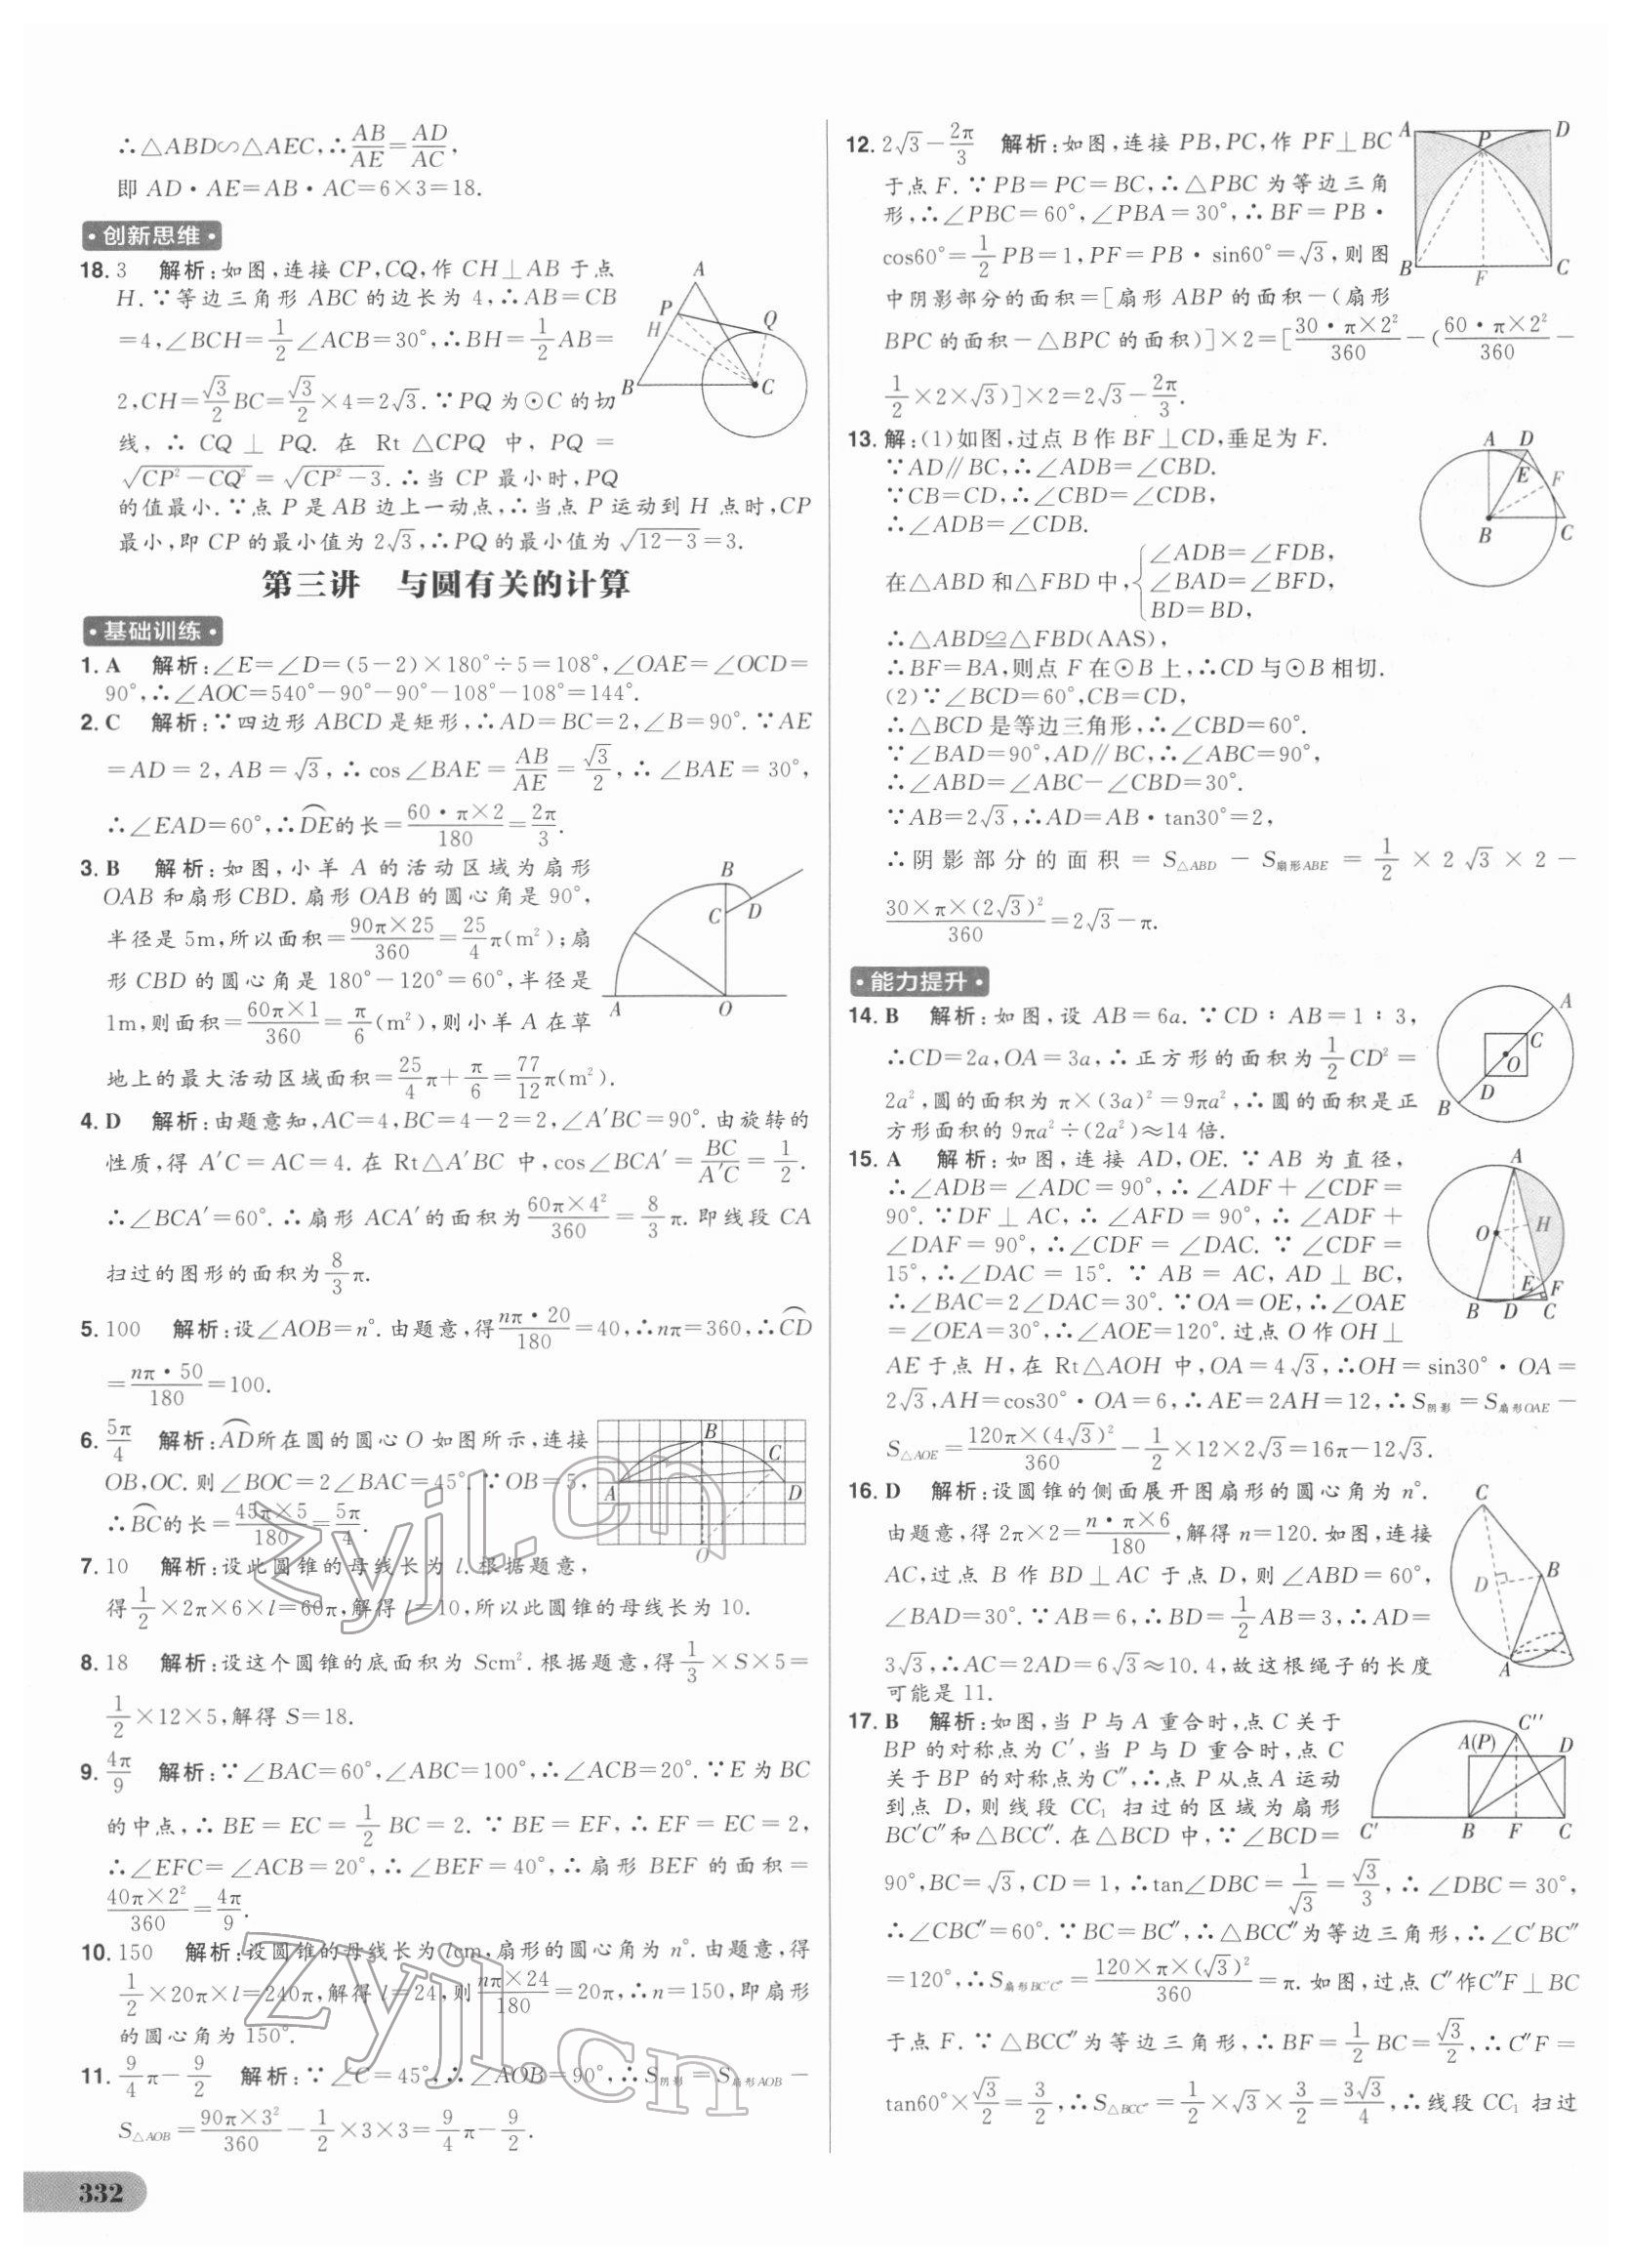 ∴△ABD∽△AEC,∴AB/AE=AD/AC,
即 AD·AE=AB·AC=6×3=18.
·创新思维·
18. 3 解析:如图,连接 CP,CQ,作 CH⊥AB 于点
H.∵等边三角形 ABC 的边长为 4,∴AB=CB
=4,∠BCH=1/2∠ACB=30°,∴BH=1/2AB=
2,CH=√3/2BC=√3/2×4=2√3.∵PQ 为⊙C 的切
线,∴ CQ ⊥ PQ. 在 Rt △CPQ 中, PQ =
√(CP²-CQ²)=√(CP²-3).∴当 CP 最小时,PQ
的值最小.∵点 P 是 AB 边上一动点,∴当点 P 运动到 H 点时,CP
最小,即 CP 的最小值为 2√3,∴PQ 的最小值为√(12-3)=3.
A
P
H
Q
B
C
第三讲 与圆有关的计算
·基础训练·
1. A 解析:∠E=∠D=(5-2)×180°÷5=108°,∠OAE=∠OCD=
90°,∴∠AOC=540°-90°-90°-108°-108°=144°.
2. C 解析:∵四边形 ABCD 是矩形,∴AD=BC=2,∠B=90°.∵AE
=AD=2,AB=√3,∴cos∠BAE=AB/AE=√3/2,∴∠BAE=30°,
∴∠EAD=60°,∴D͡E的长=60·π×2/180=2π/3.
3. B 解析:如图,小羊 A 的活动区域为扇形
OAB 和扇形CBD.扇形 OAB 的圆心角是 90°,
半径是 5m,所以面积=90π×25/360=25/4π(m²);扇
形 CBD 的圆心角是 180°-120°=60°,半径是
1m,则面积=60π×1/360=π/6(m²),则小羊 A 在草
地上的最大活动区域面积=25/4π+π/6=77/12π(m²).
B
C
D
A
O
4. D 解析:由题意知,AC=4,BC=4-2=2,∠A′BC=90°.由旋转的
性质,得 A′C=AC=4.在 Rt△A′BC 中,cos∠BCA′=BC/A′C=1/2.
∴∠BCA′=60°.∴扇形 ACA′的面积为60π×4²/360=8/3π.即线段 CA
扫过的图形的面积为8/3π.
5. 100 解析:设∠AOB=n°.由题意,得nπ·20/180=40,∴nπ=360,∴C͡D
=nπ·50/180=100.
6. 5π/4 解析:A͡D所在圆的圆心 O 如图所示,连接
OB,OC.则∠BOC=2∠BAC=45°.∵OB=5,
∴B͡C的长=45π×5/180=5π/4.
B
C
A
D
O
7. 10 解析:设此圆锥的母线长为 l.根据题意,
得1/2×2π×6×l=60π,解得 l=10,所以此圆锥的母线长为 10.
8. 18 解析:设这个圆锥的底面积为 Scm².根据题意,得1/3×S×5=
1/2×12×5,解得 S=18.
9. 4π/9 解析:∵∠BAC=60°,∠ABC=100°,∴∠ACB=20°.∵E 为 BC
的中点,∴BE=EC=1/2BC=2.∵BE=EF,∴EF=EC=2,
∴∠EFC=∠ACB=20°,∴∠BEF=40°,∴扇形 BEF 的面积=
40π×2²/360=4π/9.
10. 150 解析:设圆锥的母线长为 lcm,扇形的圆心角为 n°.由题意,得
1/2×20π×l=240π,解得 l=24,则nπ×24/180=20π,∴n=150,即扇形
的圆心角为 150°.
11. 9/4π-9/2 解析:∵∠C=45°,∴∠AOB=90°,∴S阴影=S扇形AOB-
S△AOB=90π×3²/360-1/2×3×3=9/4π-9/2.
332
12. 2√3-2π/3 解析:如图,连接 PB,PC,作 PF⊥BC
于点 F.∵PB=PC=BC,∴△PBC 为等边三角
形,∴∠PBC=60°,∠PBA=30°,∴BF=PB·
cos60°=1/2PB=1,PF=PB·sin60°=√3,则图
中阴影部分的面积=[扇形 ABP 的面积-(扇形
BPC 的面积-△BPC 的面积)]×2=[30·π×2²/360-(60·π×2²/360-
1/2×2×√3)]×2=2√3-2π/3.
A
P
D
B
F
C
13. 解:(1)如图,过点 B 作 BF⊥CD,垂足为 F.
∵AD∥BC,∴∠ADB=∠CBD.
∵CB=CD,∴∠CBD=∠CDB,
∴∠ADB=∠CDB.
在△ABD 和△FBD 中,{∠ADB=∠FDB,
∠BAD=∠BFD,
BD=BD,
∴△ABD≌△FBD(AAS),
∴BF=BA,则点 F 在⊙B 上,∴CD 与⊙B 相切.
(2)∵∠BCD=60°,CB=CD,
∴△BCD 是等边三角形,∴∠CBD=60°.
∵∠BAD=90°,AD∥BC,∴∠ABC=90°,
∴∠ABD=∠ABC-∠CBD=30°.
∵AB=2√3,∴AD=AB·tan30°=2,
∴阴影部分的面积=S△ABD-S扇形ABE=1/2×2√3×2-
30×π×(2√3)²/360=2√3-π.
A
D
E
F
B
C
·能力提升·
14. B 解析:如图,设 AB=6a.∵CD∶AB=1∶3,
∴CD=2a,OA=3a,∴正方形的面积为1/2CD²=
2a²,圆的面积为 π×(3a)²=9πa²,∴圆的面积是正
方形面积的 9πa²÷(2a²)≈14 倍.
A
C
O
D
B
15. A 解析:如图,连接 AD,OE.∵AB 为直径,
∴∠ADB=∠ADC=90°,∴∠ADF+∠CDF=
90°.∵DF⊥AC,∴∠AFD=90°,∴∠ADF+
∠DAF=90°,∴∠CDF=∠DAC.∵∠CDF=
15°,∴∠DAC=15°.∵AB=AC,AD⊥BC,
∴∠BAC=2∠DAC=30°.∵OA=OE,∴∠OAE
=∠OEA=30°,∴∠AOE=120°.过点 O 作 OH⊥
AE 于点 H,在 Rt△AOH 中,OA=4√3,∴OH=sin30°·OA=
2√3,AH=cos30°·OA=6,∴AE=2AH=12,∴S阴影=S扇形OAE-
S△AOE=120π×(4√3)²/360-1/2×12×2√3=16π-12√3.
A
O
H
E
F
B
D
C
16. D 解析:设圆锥的侧面展开图扇形的圆心角为 n°.
由题意,得 2π×2=n·π×6/180,解得 n=120.如图,连接
AC,过点 B 作 BD⊥AC 于点 D,则∠ABD=60°,
∠BAD=30°.∵AB=6,∴BD=1/2AB=3,∴AD=
3√3,∴AC=2AD=6√3≈10.4,故这根绳子的长度
可能是 11.
C
D
B
A
17. B 解析:如图,当 P 与 A 重合时,点 C 关于
BP 的对称点为 C′,当 P 与 D 重合时,点 C
关于 BP 的对称点为 C″,∴点 P 从点 A 运动
到点 D,则线段 CC₁ 扫过的区域为扇形
BC′C″和△BCC″.在△BCD 中,∵∠BCD=
90°,BC=√3,CD=1,∴tan∠DBC=1/√3=√3/3,∴∠DBC=30°,
∴∠CBC″=60°.∵BC=BC″,∴△BCC″为等边三角形,∴∠C′BC″
=120°,∴S扇形BC′C″=120×π×(√3)²/360=π.如图,过点 C″作C″F⊥BC
于点 F.∵△BCC″为等边三角形,∴BF=1/2BC=√3/2,∴C″F=
tan60°×√3/2=3/2,∴S△BCC″=1/2×√3×3/2=3√3/4,∴线段 CC₁ 扫过
C″
A(P)
D
C′
B
F
C
zyjl.cn
zyjl.cn